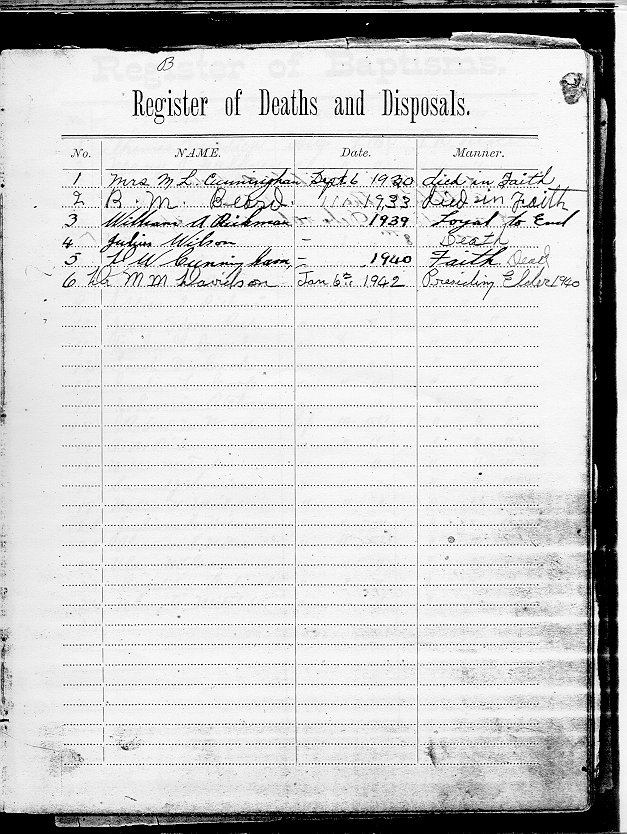 B
Register of Deaths and Disposals.
No. NAME. Date. Manner.
1 Mrs M L Cunningham Sept 6 1930 died in Faith
2 B. M. Beard. 1933 Died in Faith
3 William A 1939 Loyal to End
4 Julius Wilson - Death
5 W Cunningham, - 1940 Faith Dead
6 Dr M M Davidson Jan 6th 1942 Presiding Elder 1940